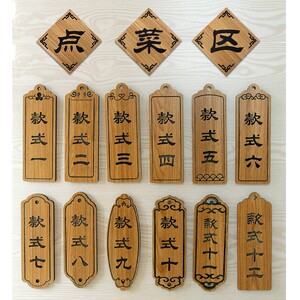 点菜区
款式一
款式二
款式三
款式四
款式五
款式六
款式七
款式八
款式九
款式十
款式十一
款式十二